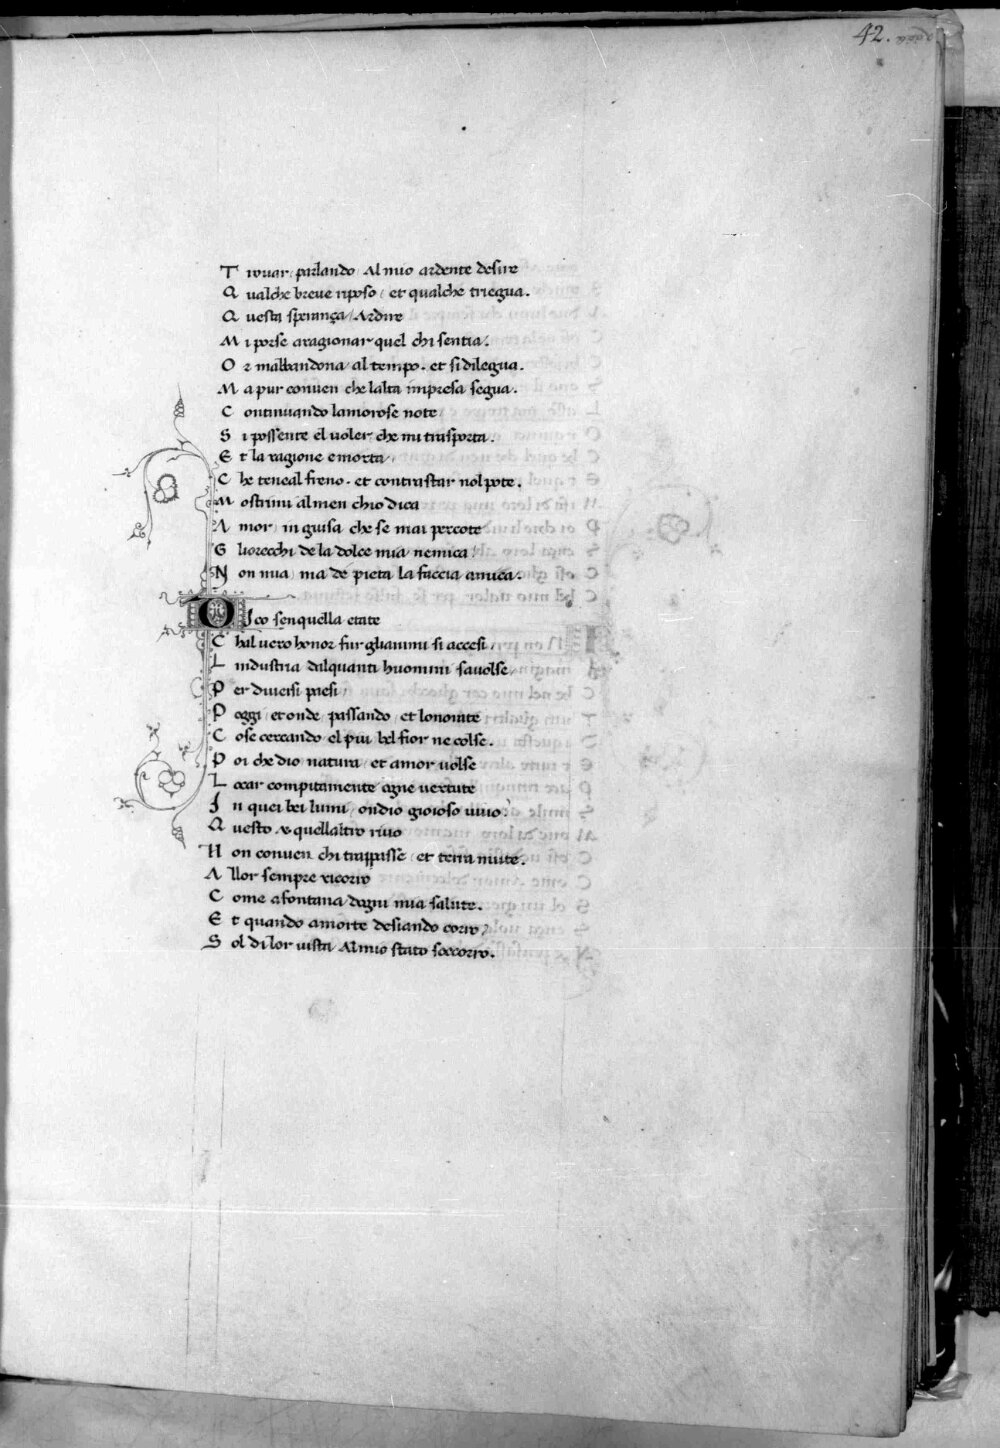 42.
Trouar parlando Al mio ardente desire
Qualche breue riposo / et qualche triegua.
Questa sperança / Ardire
Mi porse aragionar quel chi sentia.
Or mabbandona / al tempo. et si dilegua.
Ma pur conuen che lalta impresa segua.
Continuando lamorose note
Si possente el uoler che mi trasporta.
Et la ragione e morta /
Che teneal freno. et contrastar nol pote.
Mostrimi almen chio dica
Amor in guisa che se mai percote
Gliorecchi de la dolce mia nemica /
Non mia ma de pieta la faccia amica.
Dico senquella etate
Chal uero honor fur glianimi si accesi /
Lindustria dalquanti huomini sauolse
Per diuersi paesi /
Poggi et onde passando / et lonorate
Cose cercando el piu bel fior ne colse.
Poi che dio natura / et amor uolse
Locar compitamente ogne uertute
In quei bei lumi / ondio gioioso uiuo
Questo & quellaltro riuo
Non conuen chi trappasse / et terra mute.
Allor sempre ricorro
Come a fontana dogni mia salute.
Et quando amorte desiando corro /
Sol di lor uista Al mio stato soccorro.